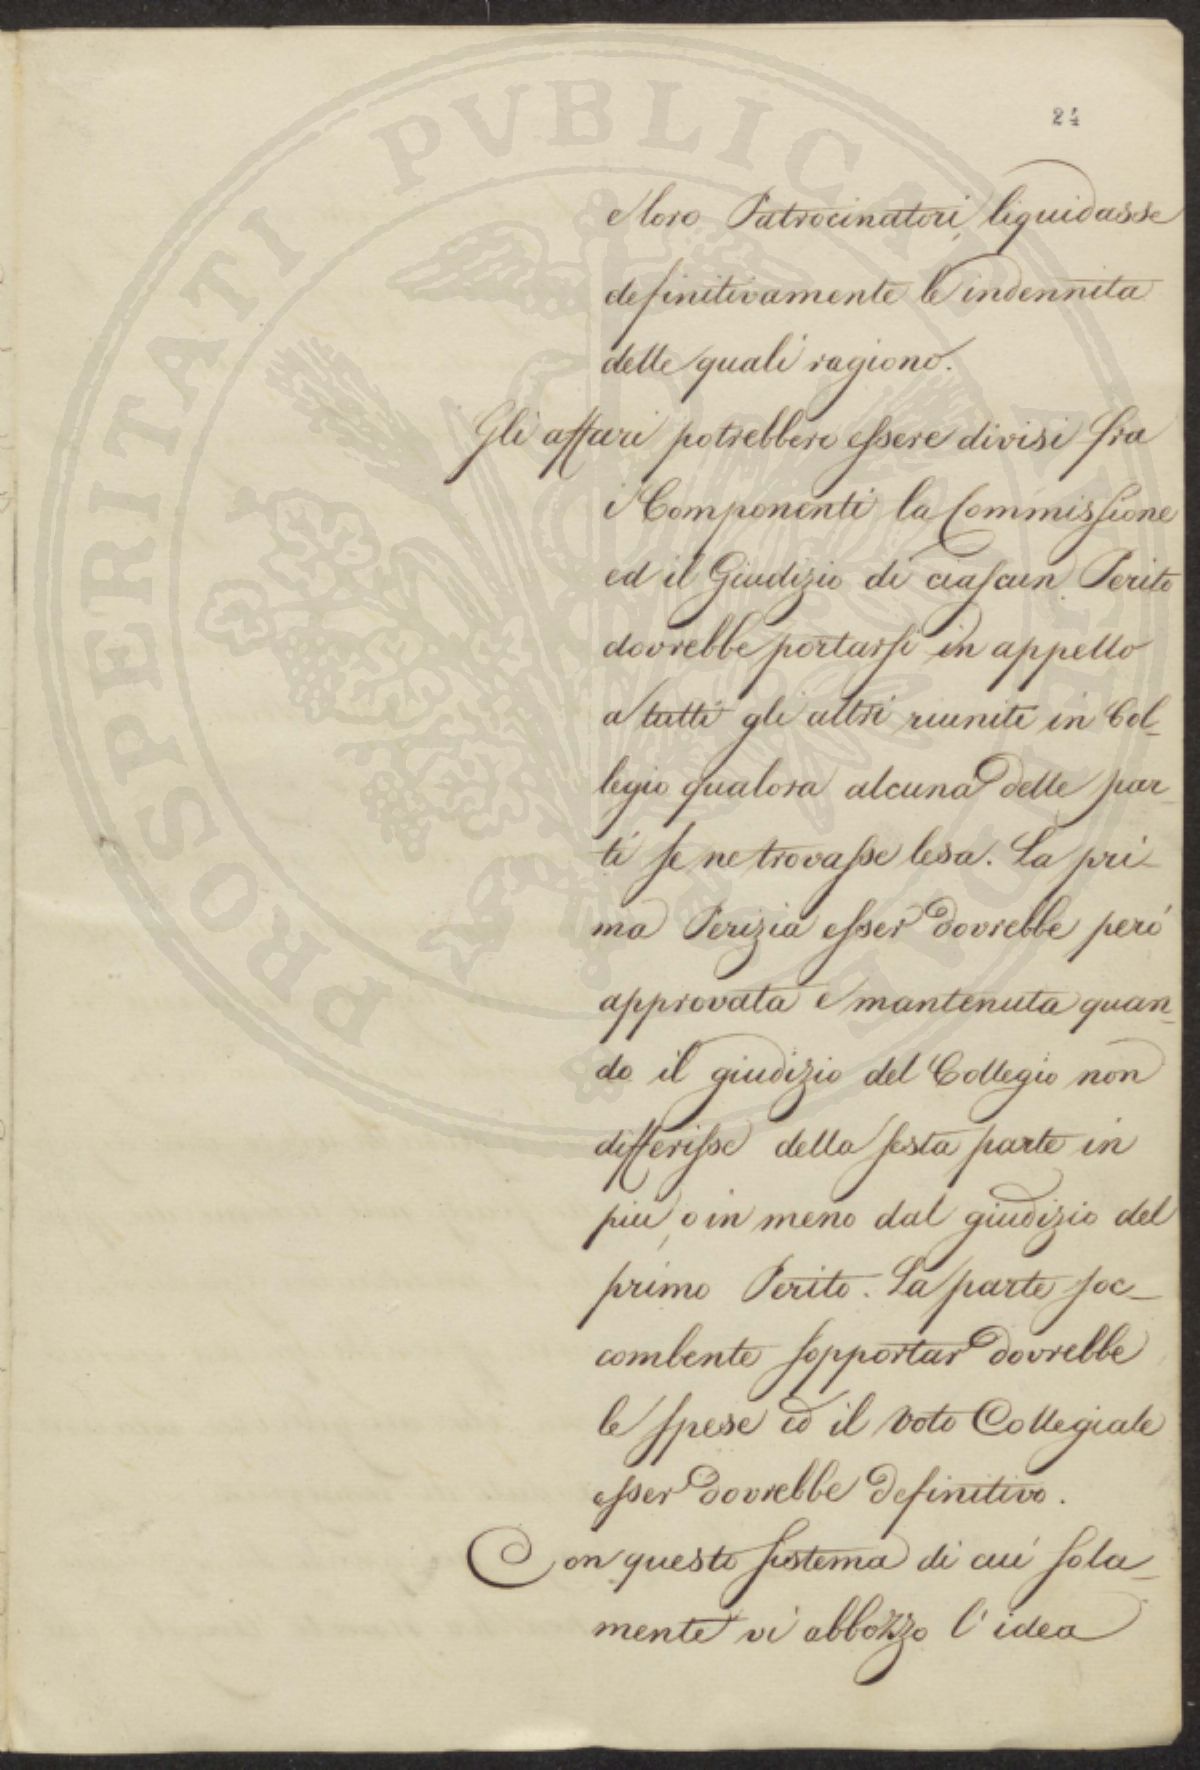 24
e loro Patrocinatori, liquidasse
definitivamente le indennita
delle quali ragiono.
Gli affari potrebbero essere divisi fra
i Componenti la Commissione
ed il Giudizio di ciascun Perito
dovrebbe portarsi in appello
a tutti gli altri riuniti in Col-
legio qualora alcuna delle par-
ti se ne trovasse lesa. La pri-
ma Perizia esser dovrebbe però
approvata e mantenuta quan-
do il giudizio del Collegio non
differisse della sesta parte in
piu, o in meno dal giudizio del
primo Perito. La parte soc-
combente sopportar dovrebbe
le spese ed il Voto Collegiale
esser dovrebbe definitivo.
Con questo sistema di cui sola-
mente vi abbozzo l'idea
PROSPERITATI PVBLICAE AVGENDAE